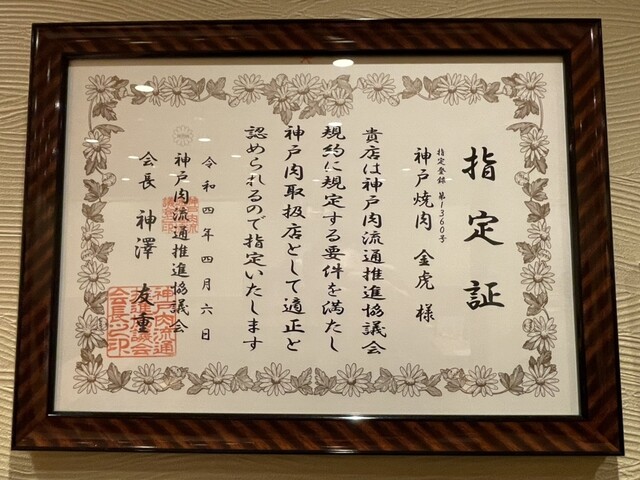 指定証
指定登録 第1360号
神戸焼肉 金虎 様
貴店は神戸肉流通推進協議会
規約に規定する要件を満たし
神戸肉取扱店として適正と
認められるので指定いたします
令和四年四月六日
神戸肉流通推進協議会
会長 神澤 友重
神戸肉流通
推進協議会
会長之印